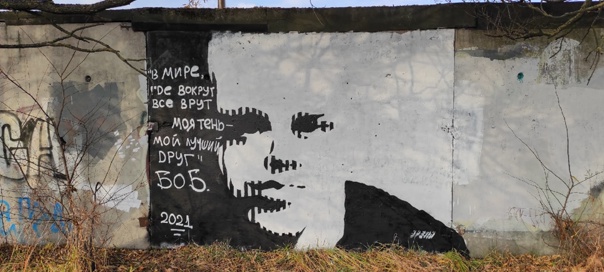 "В МИРЕ,
ГДЕ ВОКРУГ
ВСЕ ВРУТ
МОЯ ТЕНЬ –
МОЙ ЛУЧШИЙ
ДРУГ"
БОБ.
2021